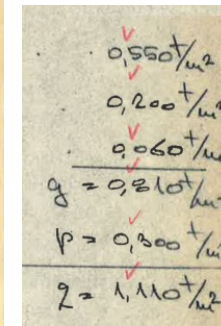 0,550 t/m2
0,200 t/m2
0,060 t/m2
g = 0,810 t/m2
p = 0,300 t/m2
q = 1,110 t/m2